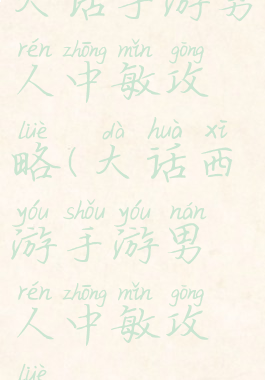 大话手游男
rén zhōng mǐn gōng
人中敏攻
lüè dà huà xī
略(大话西
yóu shǒu yóu nán
游手游男
rén zhōng mǐn gōng
人中敏攻
lüè